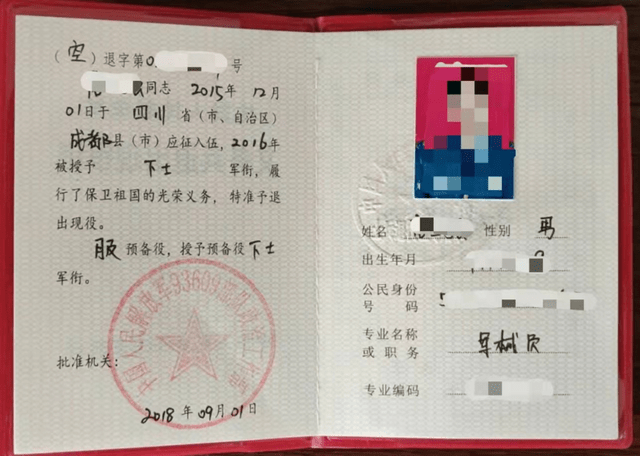 (空)退字第0 号
同志 2015年 12月
01日于 四川 省(市、自治区)
成都 县(市)应征入伍,2016年
被授予 下士 军衔,履
行了保卫祖国的光荣义务,特准予退
出现役。
服 预备役,授予预备役 下士
军衔。
中国人民解放军93609部队
批准机关:
2018年09月01日
姓名 性别 男
出生年月
公民身份
号码
专业名称 军械员
或职务
专业编码